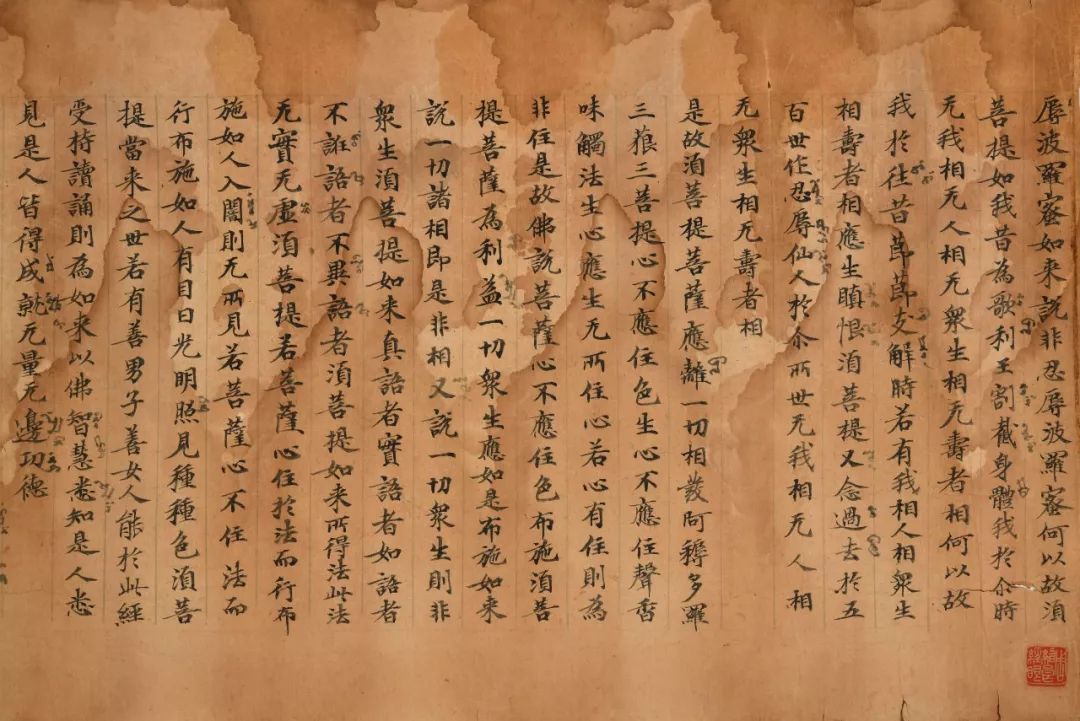 辱波羅蜜如来說非忍辱波羅蜜何以故湏
菩提如我昔為歌利王割截身體我於尒時
无我相无人相无衆生相无壽者相何以故
我於往昔莭莭支解時若有我相人相衆生
相壽者相應生瞋恨湏菩提又念過去於五
百世作忍辱仙人於尒所世无我相无人相
无衆生相无壽者相
是故湏菩提菩薩應離一切相發阿耨多羅
三藐三菩提心不應住色生心不應住聲香
味觸法生心應生无所住心若心有住則為
非住是故佛說菩薩心不應住色布施湏菩
提菩薩為利益一切衆生應如是布施如来
說一切諸相即是非相又說一切衆生則非
衆生湏菩提如来真語者實語者如語者
不誑語者不異語者湏菩提如来所得法此法
无實无虛湏菩提若菩薩心住於法而行布
施如人入闇則无所見若菩薩心不住法而
行布施如人有目日光明照見種種色湏菩
提當来之世若有善男子善女人能於此經
受持讀誦則為如来以佛智慧悉知是人悉
見是人皆得成就无量无邊功德